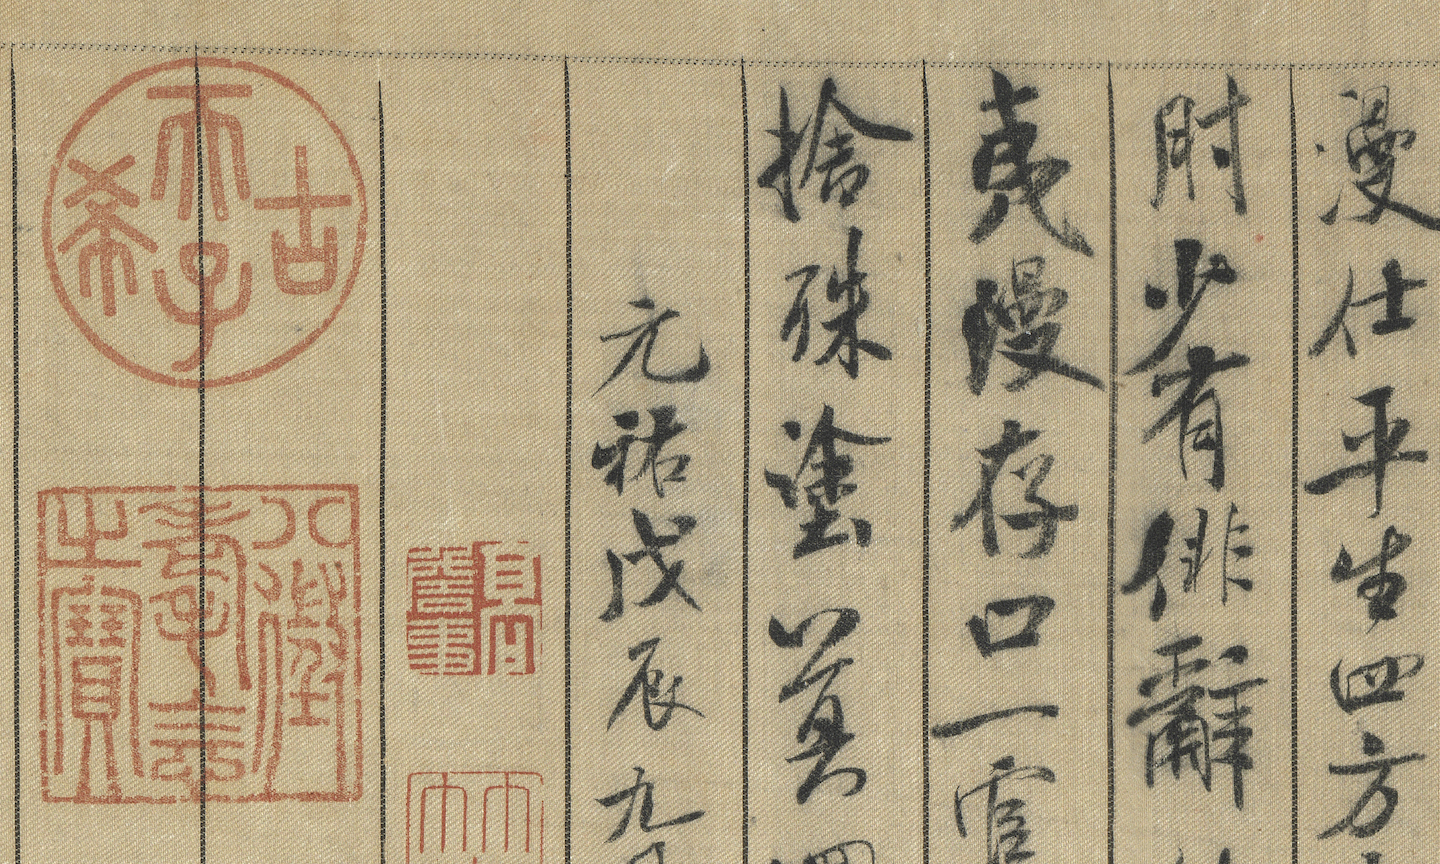 漫仕平生四方
肘少有俳辭
夷漫存口一官
捨殊塗莫
元祐戊辰九
高詹事
古希天子
八徵耄念之寶